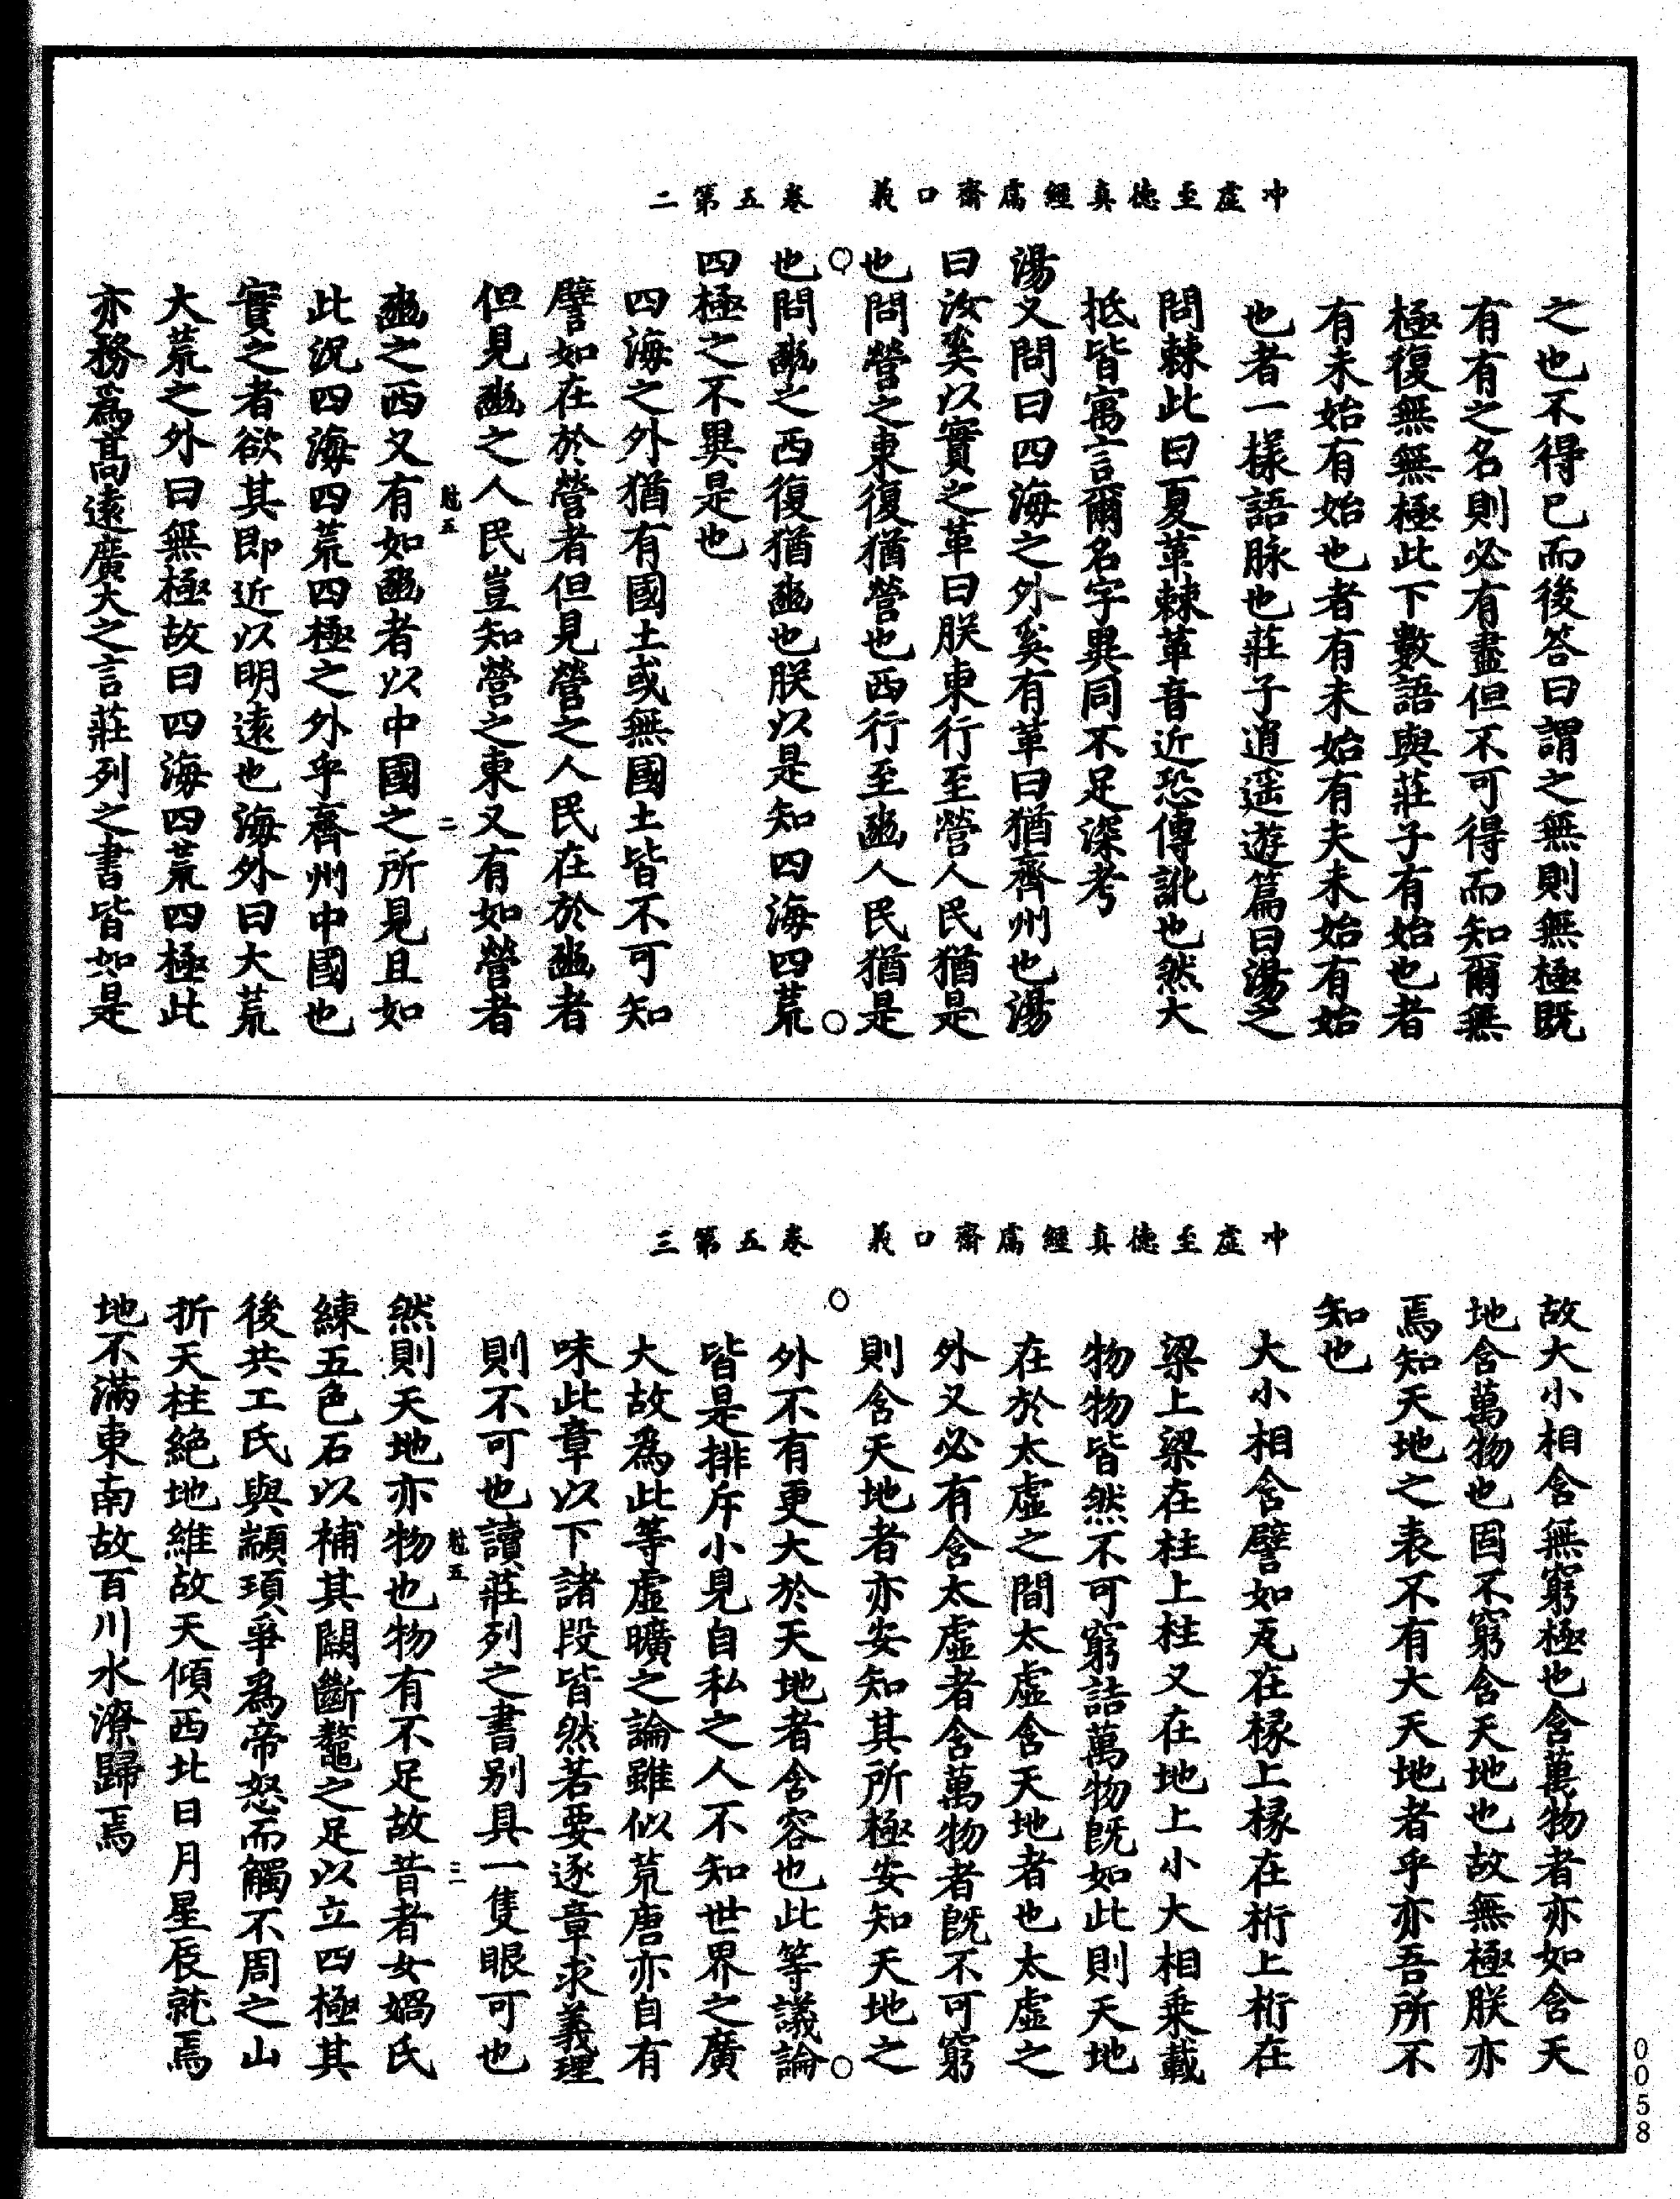 冲虛至德真經鬳齋口義　卷五第二
之也不得已而後答曰謂之無則無極既
有有之名則必有盡但不可得而知爾無
極復無無極此下數語與莊子有始也者
有未始有始也者有未始有夫未始有始
也者一樣語脉也莊子逍遥遊篇曰湯之
問棘此曰夏革棘革音近恐傳訛也然大
抵皆寓言爾名字異同不足深考
湯又問曰四海之外奚有革曰猶齊州也湯
曰汝奚以實之革曰朕東行至營人民猶是
也問營之東復猶營也西行至豳人民猶是
也問豳之西復猶豳也朕以是知四海四荒
四極之不異是也
四海之外猶有國土或無國土皆不可知
譬如在於營者但見營之人民在於豳者
但見豳之人民豈知營之東又有如營者
五
二
豳之西又有如豳者以中國之所見且如
此況四海四荒四極之外乎齊州中國也
實之者欲其即近以明遠也海外曰大荒
大荒之外曰無極故曰四海四荒四極此
亦務爲高遠廣大之言莊列之書皆如是
冲虛至德真經鬳齋口義　卷五第三
故大小相含無窮極也含萬物者亦如含天
地含萬物也固不窮含天地也故無極朕亦
焉知天地之表不有大天地者乎亦吾所不
知也
大小相含譬如瓦在椽上椽在桁上桁在
梁上梁在柱上柱又在地上小大相乘載
物物皆然不可窮詰萬物既如此則天地
在於太虛之間太虛含天地者也太虛之
外又必有含太虛者含萬物者既不可窮
則含天地者亦安知其所極安知天地之
外不有更大於天地者含容也此等議論
皆是排斥小見自私之人不知世界之廣
大故爲此等虛曠之論雖似荒唐亦自有
味此章以下諸段皆然若要逐章求義理
則不可也讀莊列之書別具一隻眼可也
五
三
然則天地亦物也物有不足故昔者女媧氏
練五色石以補其闕斷鼇之足以立四極其
後共工氏與顓頊爭爲帝怒而觸不周之山
折天柱絶地維故天傾西北日月星辰就焉
地不滿東南故百川水潦歸焉
0058